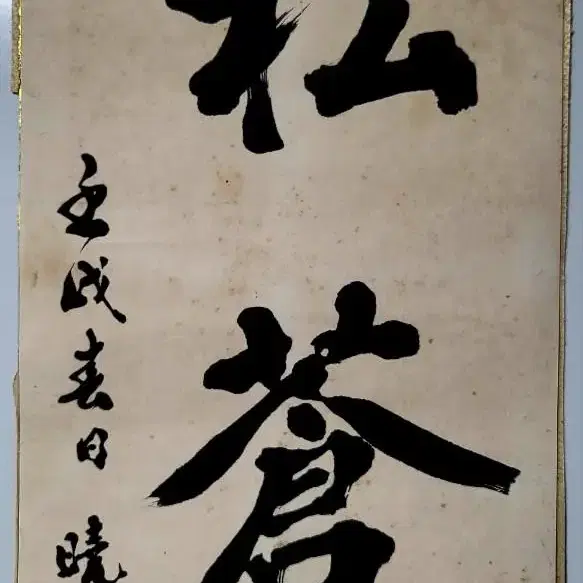 松蒼
壬戌春日 曉